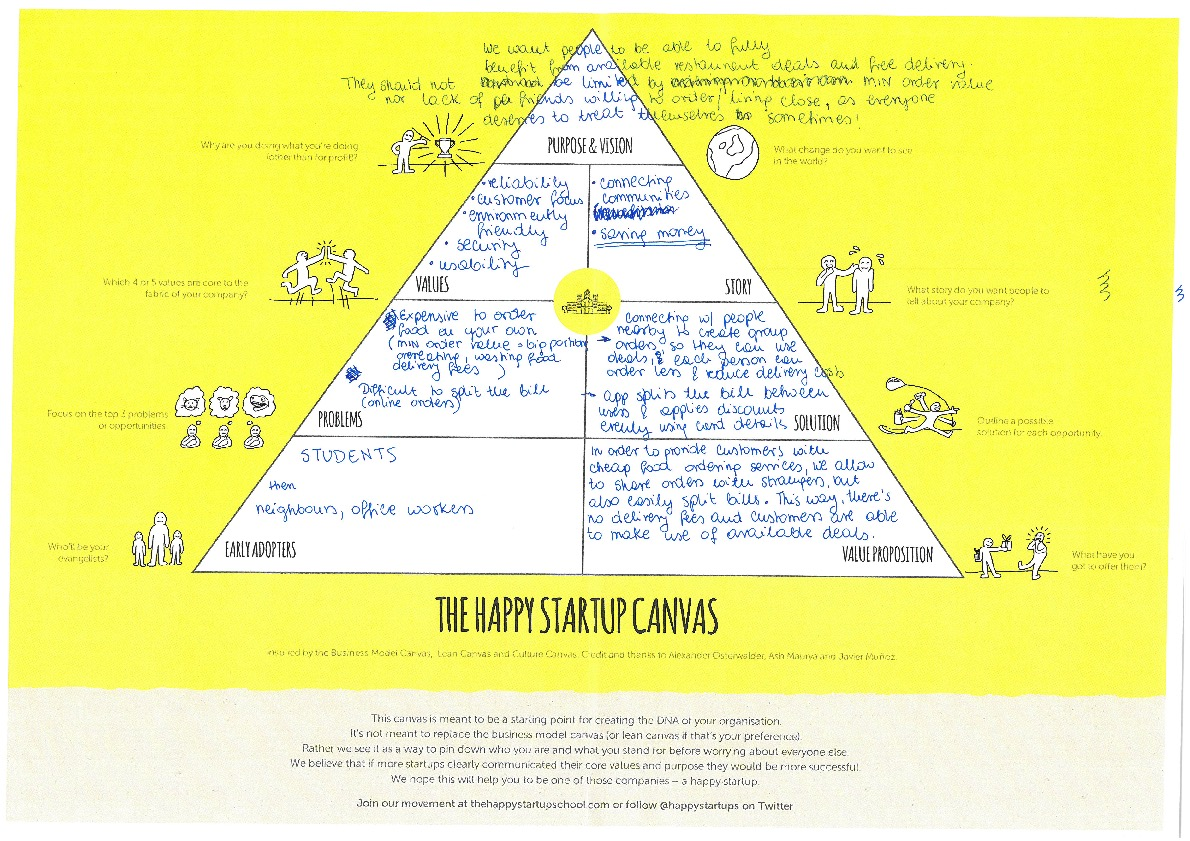 We want people to be able to fully
benefit from available restaurant deals and free delivery.
They should not be limited by min order value
nor lack of friends willing to order/living close, as everyone
deserves to treat themselves sometimes!
PURPOSE & VISION
Why are you doing what you're doing
(other than for profit)?
What change do you want to see
in the world?
• reliability
• customer focus
• environmently
friendly
• security
• usability
VALUES
• connecting
communities
• saving money
STORY
Which 4 or 5 values are core to the
fabric of your company?
What story do you want people to
tell about your company?
Expensive to order
food on your own
(min order value = big portion
overeating, wasting food
delivery fees )
Difficult to split the bill
(online orders)
PROBLEMS
→ connecting w/ people
nearby to create group
orders, so they can use
deals, & each person can
order less & reduce delivery costs
→ app splits the bill between
users & applies discounts
evenly using card details
SOLUTION
Focus on the top 3 problems
or opportunities
Outline a possible
solution for each opportunity.
STUDENTS
then
neighbours, office workers
EARLY ADOPTERS
In order to provide customers with
cheap food ordering services, we allow
to share orders with strangers, but
also easily split bills. This way, there's
no delivery fees and customers are able
to make use of available deals.
VALUE PROPOSITION
Who'll be your
evangelists?
What have you
got to offer them?
THE HAPPY STARTUP CANVAS
Inspired by the Business Model Canvas, Lean Canvas and Culture Canvas. Credit and thanks to Alexander Osterwalder, Ash Maurya and Javier Muñoz.
This canvas is meant to be a starting point for creating the DNA of your organisation.
It's not meant to replace the business model canvas (or lean canvas if that's your preference).
Rather we see it as a way to pin down who you are and what you stand for before worrying about everyone else.
We believe that if more startups clearly communicated their core values and purpose they would be more successful.
We hope this will help you to be one of those companies – a happy startup.
Join our movement at thehappystartupschool.com or follow @happystartups on Twitter